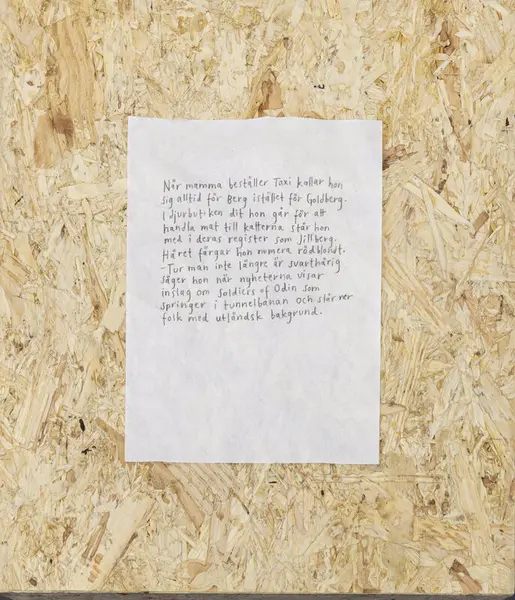 När mamma beställer Taxi kallar hon
sig alltid för Berg istället för Goldberg.
I djurbutiken dit hon går för att
handla mat till katterna står hon
med i deras register som Jill Berg.
Håret färgar hon numera rödblondt.
-Tur man inte längre är svarthårig
säger hon när nyheterna visar
inslag om Soldiers of Odin som
springer i tunnelbanan och slår ner
folk med utländsk bakgrund.